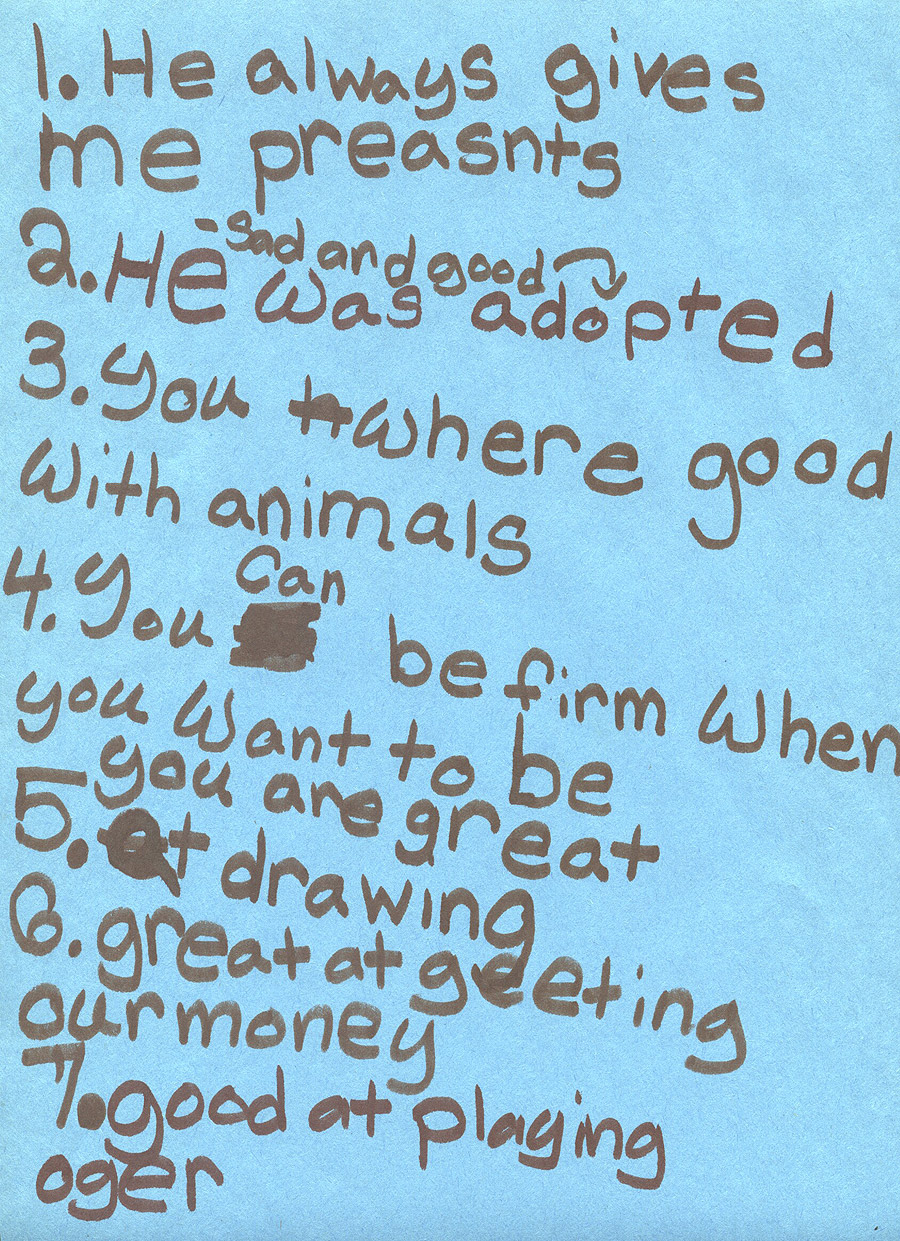 1. He always gives
me preasnts
-Sad and good
2. He was adopted
3. You where good
with animals
Can
4. You be firm When
you Want to be
you are great
5. at drawing
6. great at geeting
our money
7. good at playing
oger